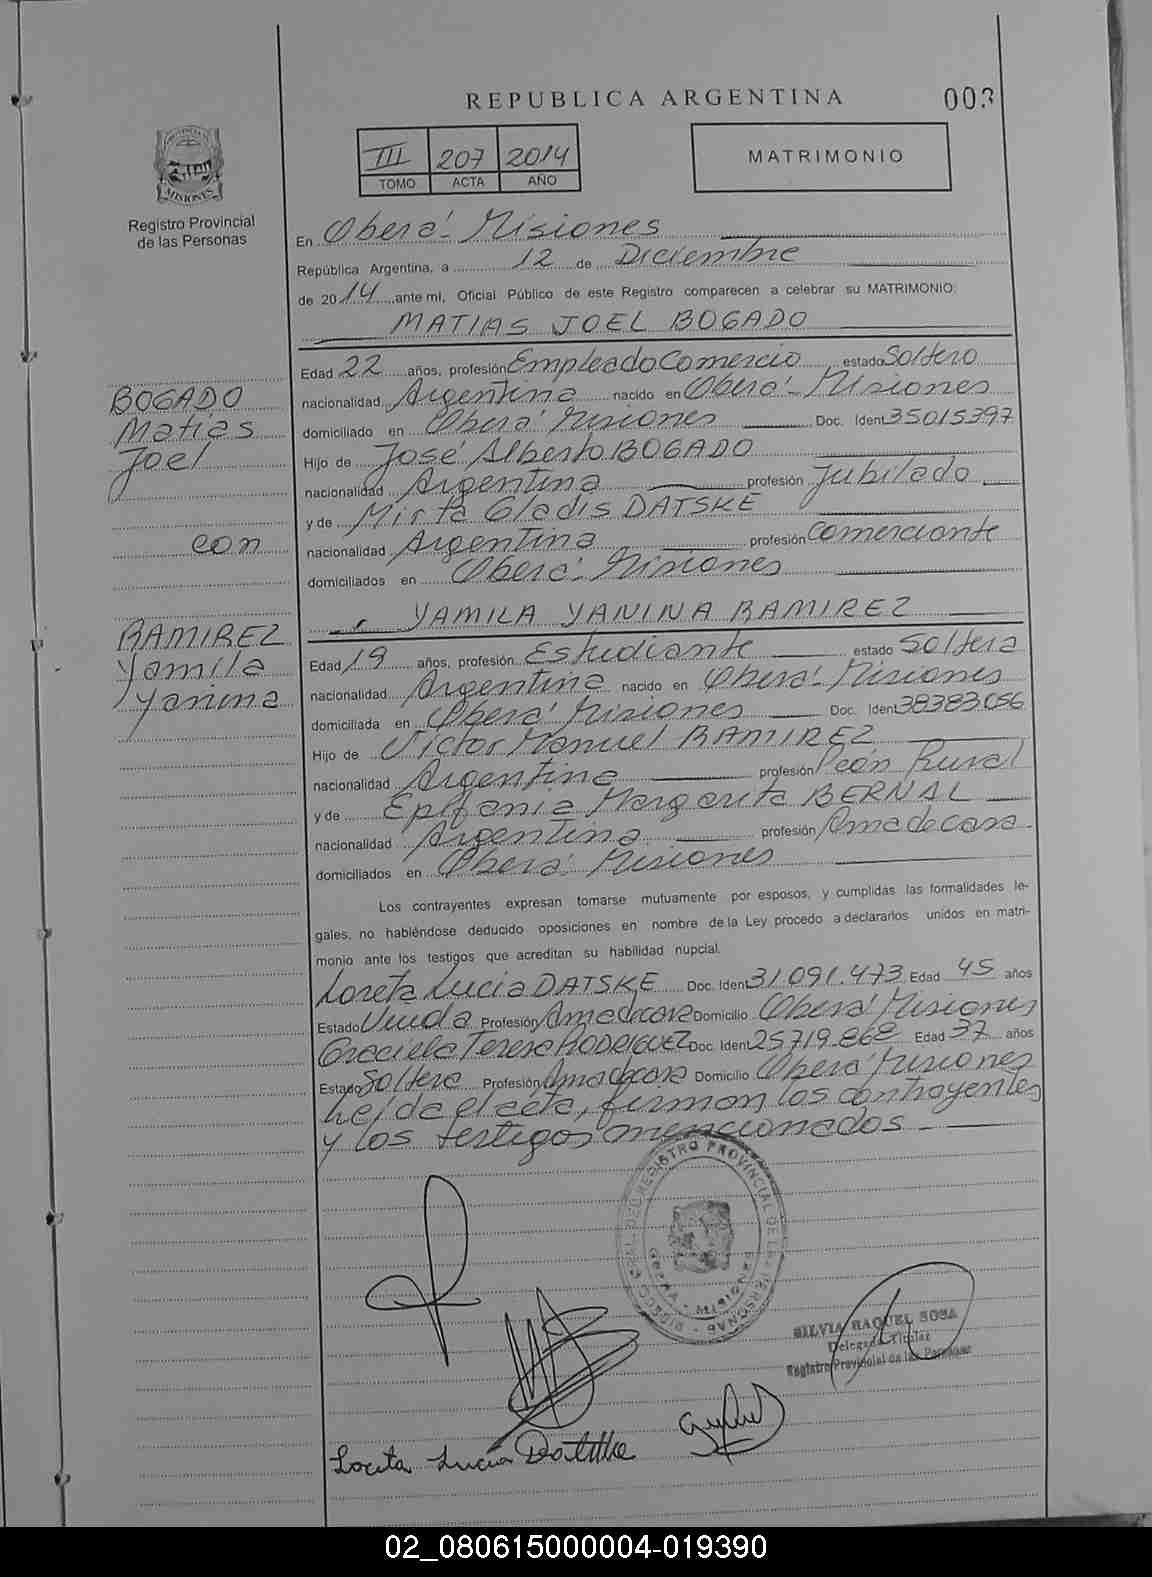 REPUBLICA ARGENTINA
003
III 207 2014
TOMO ACTA AÑO
MATRIMONIO
PROVINCIA DE
MISIONES
Registro Provincial
de las Personas
En Oberá - Misiones
República Argentina, a 12 de Diciembre
de 2014 ante mí, Oficial Público de este Registro comparecen a celebrar su MATRIMONIO:
MATIAS JOEL BOGADO
Edad 22 años, profesión Empleado Comercio estado Soltero
nacionalidad Argentina nacido en Oberá - Misiones
domiciliado en Oberá Misiones Doc. Ident 35015397
Hijo de José Alberto BOGADO
nacionalidad Argentina profesión Jubilado
y de Mirta Gladis DATSKE
nacionalidad Argentina profesión Comerciante
domiciliados en Oberá - Misiones
BOGADO
Matias
Joel
con
RAMIREZ
Yamila
Yanina
YAMILA YANINA RAMIREZ
Edad 19 años, profesión Estudiante estado Soltera
nacionalidad Argentina nacido en Oberá - Misiones
domiciliada en Oberá Misiones Doc. Ident 38383056
Hijo de Victor Manuel RAMIREZ
nacionalidad Argentina profesión Peón Rural
y de Epifania Margarita BERNAL
nacionalidad Argentina profesión Ama de casa
domiciliados en Oberá - Misiones
Los contrayentes expresan tomarse mutuamente por esposos, y cumplidas las formalidades le-
gales, no habiéndose deducido oposiciones en nombre de la Ley procedo a declararlos unidos en matri-
monio ante los testigos que acreditan su habilidad nupcial.
Loreta Lucia DATSKE Doc. Ident 31.091.473 Edad 45 años
Estado Viuda Profesión Ama de casa Domicilio Oberá Misiones
Graciela Teresa RODRIGUEZ Doc. Ident 25719.868 Edad 37 años
Estado Soltera Profesión Ama de casa Domicilio Oberá Misiones
Leída el acta, firman los contrayentes
y los testigos mencionados. -
REGISTRO PROVINCIAL DE LAS PERSONAS
OBERA - MISIONES
SILVIA RAQUEL SOSA
Delegada Titular
Registro Provincial de las Personas
Loreta Lucia Datske
02_080615000004-019390